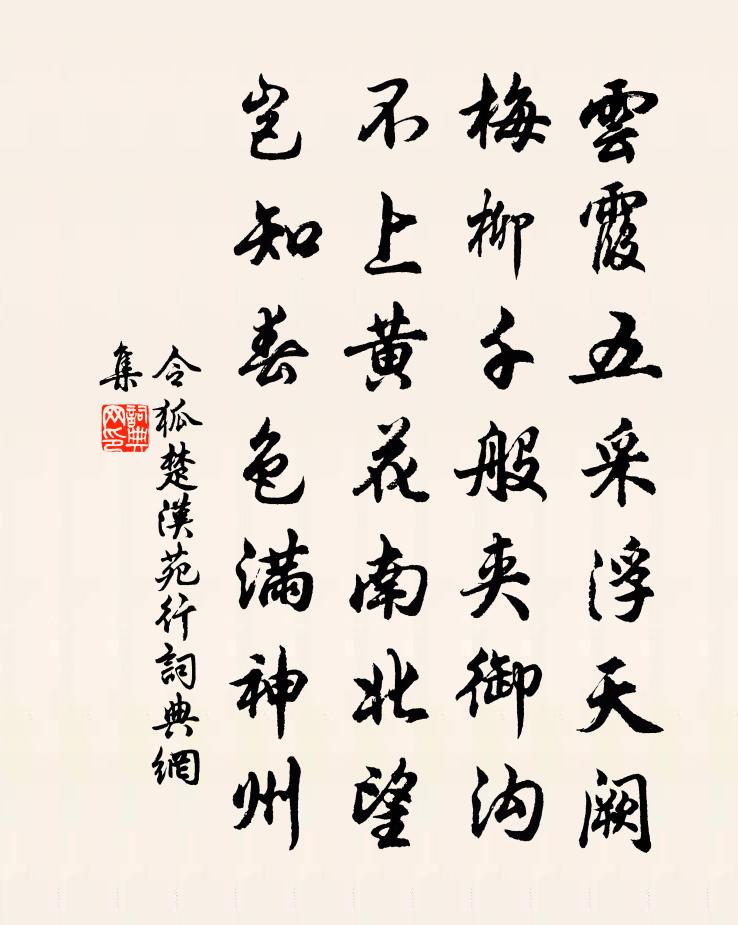 雲霞五采浮天阙
梅柳千般夾御沟
不上黄花南北望
岂知春色滿神州
令狐楚漢苑行詞典網
集
詞典
网印